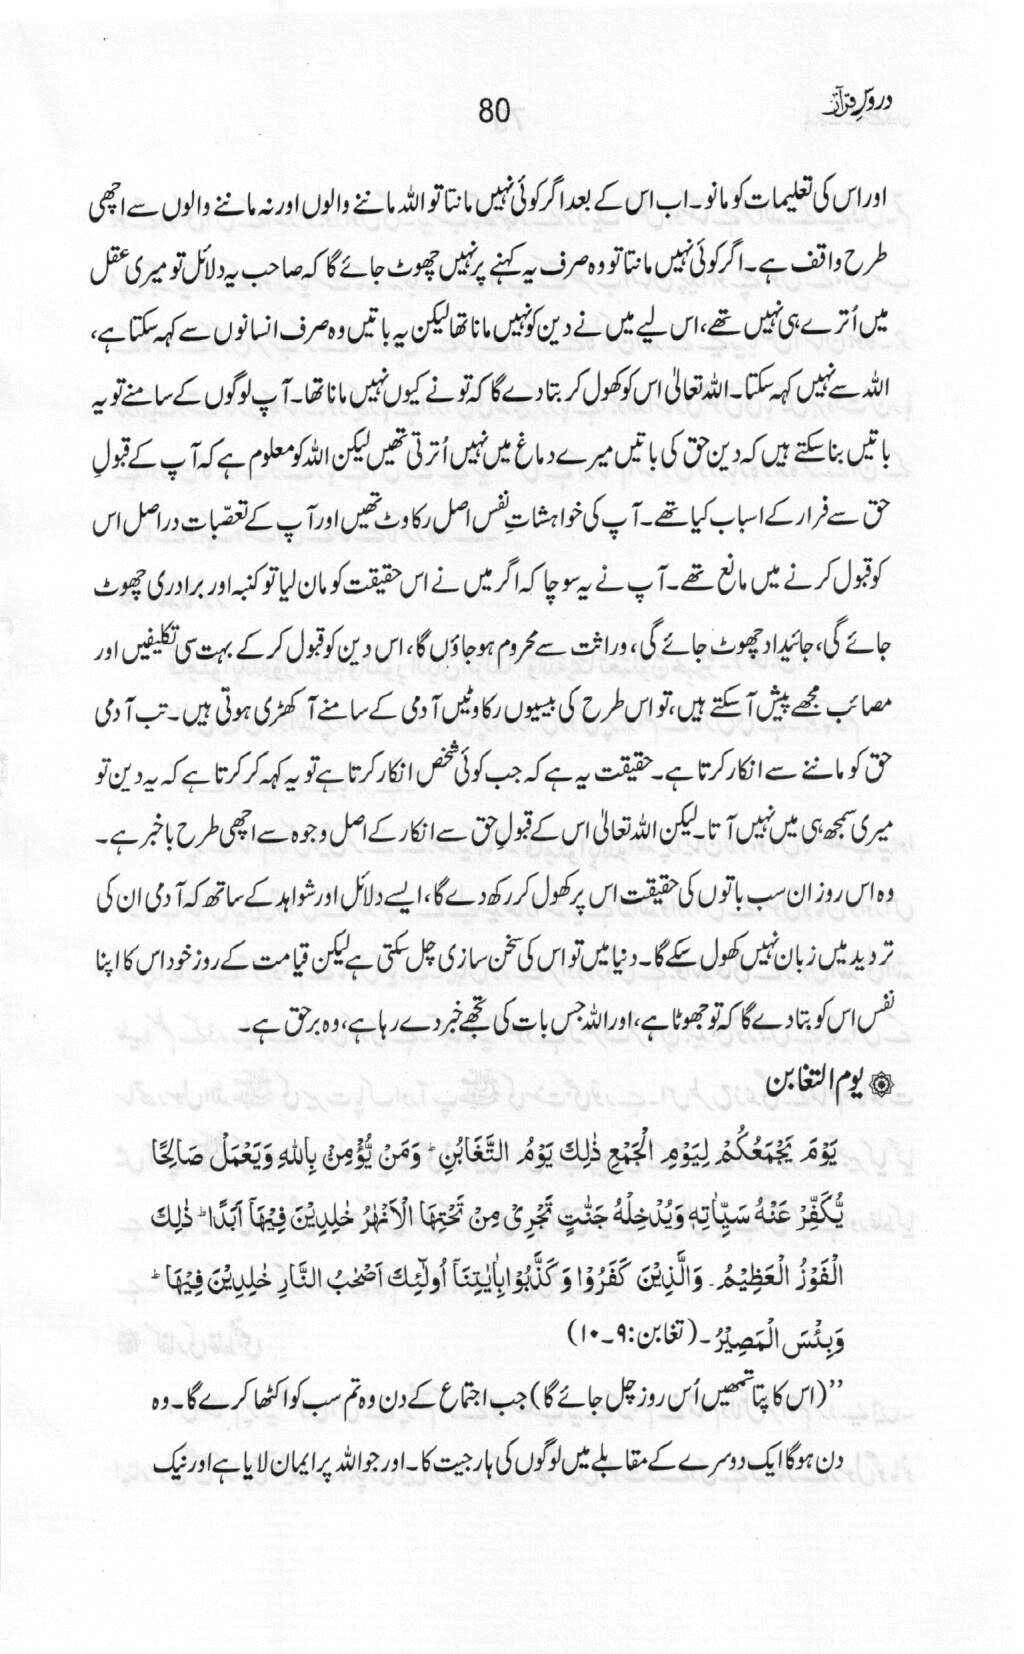 دروسِ قرآن
80
اور اس کی تعلیمات کو مانو۔ اب اس کے بعد اگر کوئی نہیں مانتا تو اللہ ماننے والوں اور نہ ماننے والوں سے اچھی
طرح واقف ہے۔ اگر کوئی نہیں مانتا تو وہ صرف یہ کہنے پر نہیں چھوٹ جائے گا کہ صاحب یہ دلائل تو میری عقل
میں اُترے ہی نہیں تھے، اس لیے میں نے دین کو نہیں مانا تھا لیکن یہ باتیں وہ صرف انسانوں سے کہہ سکتا ہے،
اللہ سے نہیں کہہ سکتا۔ اللہ تعالیٰ اس کو کھول کر بتا دے گا کہ تو نے کیوں نہیں مانا تھا۔ آپ لوگوں کے سامنے تو یہ
باتیں بنا سکتے ہیں کہ دین حق کی باتیں میرے دماغ میں نہیں اُترتی تھیں لیکن اللہ کو معلوم ہے کہ آپ کے قبولِ
حق سے فرار کے اسباب کیا تھے۔ آپ کی خواہشاتِ نفس اصل رکاوٹ تھیں اور آپ کے تعصّبات دراصل اس
کو قبول کرنے میں مانع تھے۔ آپ نے یہ سوچا کہ اگر میں نے اس حقیقت کو مان لیا تو کنبہ اور برادری چھوٹ
جائے گی، جائیداد چھوٹ جائے گی، وراثت سے محروم ہو جاؤں گا، اس دین کو قبول کر کے بہت سی تکلیفیں اور
مصائب مجھے پیش آ سکتے ہیں، تو اس طرح کی بیسیوں رکاوٹیں آدمی کے سامنے آ کھڑی ہوتی ہیں۔ تب آدمی
حق کو ماننے سے انکار کرتا ہے۔ حقیقت یہ ہے کہ جب کوئی شخص انکار کرتا ہے تو یہ کہہ کر کرتا ہے کہ یہ دین تو
میری سمجھ ہی میں نہیں آتا۔ لیکن اللہ تعالیٰ اس کے قبولِ حق سے انکار کے اصل وجوہ سے اچھی طرح باخبر ہے۔
وہ اس روز ان سب باتوں کی حقیقت اس پر کھول کر رکھ دے گا، ایسے دلائل اور شواہد کے ساتھ کہ آدمی ان کی
تردید میں زبان نہیں کھول سکے گا۔ دنیا میں تو اس کی سخن سازی چل سکتی ہے لیکن قیامت کے روز خود اس کا اپنا
نفس اس کو بتا دے گا کہ تو جھوٹا ہے، اور اللہ جس بات کی تجھے خبر دے رہا ہے، وہ برحق ہے۔
۞ یوم التغابن
يَوْمَ يَجْمَعُكُمْ لِيَوْمِ الْجَمْعِ ذٰلِكَ يَوْمُ التَّغَابُنِ ؕ وَمَنْ يُّؤْمِنْۢ بِاللّٰهِ وَيَعْمَلْ صَالِحًا
يُّكَفِّرْ عَنْهُ سَيِّاٰتِهٖ وَيُدْخِلْهُ جَنّٰتٍ تَجْرِيْ مِنْ تَحْتِهَا الْاَنْهٰرُ خٰلِدِيْنَ فِيْهَآ اَبَدًا ؕ ذٰلِكَ
الْفَوْزُ الْعَظِيْمُ۔ وَالَّذِيْنَ كَفَرُوْا وَكَذَّبُوْا بِاٰيٰتِنَآ اُولٰٓئِكَ اَصْحٰبُ النَّارِ خٰلِدِيْنَ فِيْهَا ؕ
وَبِئْسَ الْمَصِيْرُ۔ (تغابن:۹۔۱۰)
’’(اس کا پتا تمھیں اُس روز چل جائے گا) جب اجتماع کے دن وہ تم سب کو اکٹھا کرے گا۔ وہ
دن ہوگا ایک دوسرے کے مقابلے میں لوگوں کی ہار جیت کا۔ اور جو اللہ پر ایمان لایا ہے اور نیک